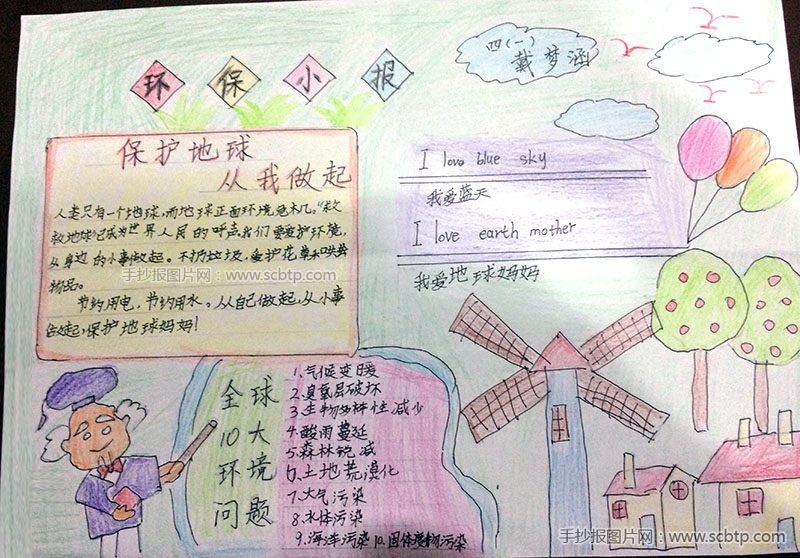 环保小报
四(一)
戴梦涵
保护地球
从我做起
人类只有一个地球,而地球正面环境危机。“救
救地球”已成为世界人民的呼声,我们要爱护环境,
从身边的小事做起。不扔垃圾,爱护花草
物品。
节约用电,节约用水。从自己做起,从小事
做起,保护地球妈妈!
I love blue sky
我爱蓝天
I love earth mother
我爱地球妈妈
手抄报图片网:www.scbtp.com
全球
10大
环境
问题
1.气候变暖
2.臭氧层破坏
3.生物多样性减少
4.酸雨蔓延
5.森林锐减
6.土地荒漠化
7.大气污染
8.水体污染
9.海洋污染 10.固体废物污染
手抄报图片网:www.scbtp.com